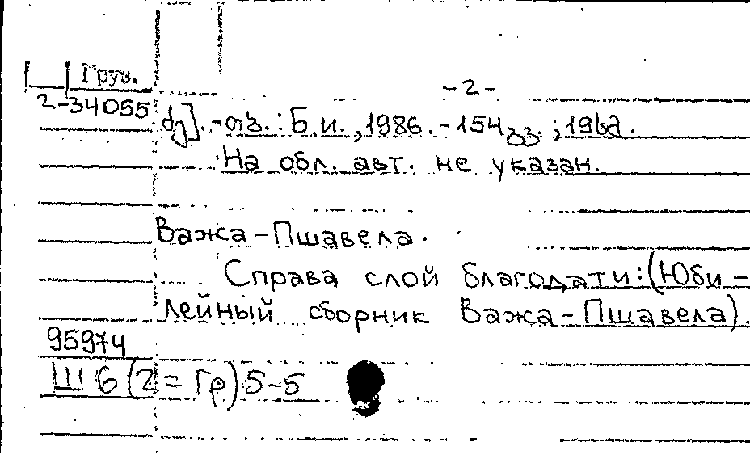 Груз.
- 2 -
2-34055
ძე]. - თბ. : Б.и., 1986. - 154 გვ. ; 19სმ.
На обл. авт. не указан.
Важа - Пшавела.
Справа слой благодати: (Юби-
лейный сборник Важа - Пшавела).
95974
Ш 6 (2 = Гр) 5-5